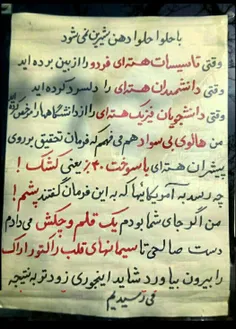 با حلوا حلوا دهن شیرین نمی شود
وقتی تاسیسات هسته ای فردو را از بین برده اید
وقتی دانشمندان هسته ای را دلسرد کرده اید
وقتی دانشجویان فیزیک هسته ای را از دانشگاهها مرخص کرده
من هالوی بی سواد هم می فهمم که فرمان تحقیق بر روی
پیشران هسته ای با سوخت ۴۰٪ یعنی کشک !
چه رسد به آمریکائیها که به این فرمان گفتند پشم !
من اگر جای شما بودم یک قلم و چکش می دادم
دست صالحی تا سیمانهای قلب راکتور اراک
را بیرون بیاورد شاید اینجوری زودتر به نتیجه
می رسیدیم